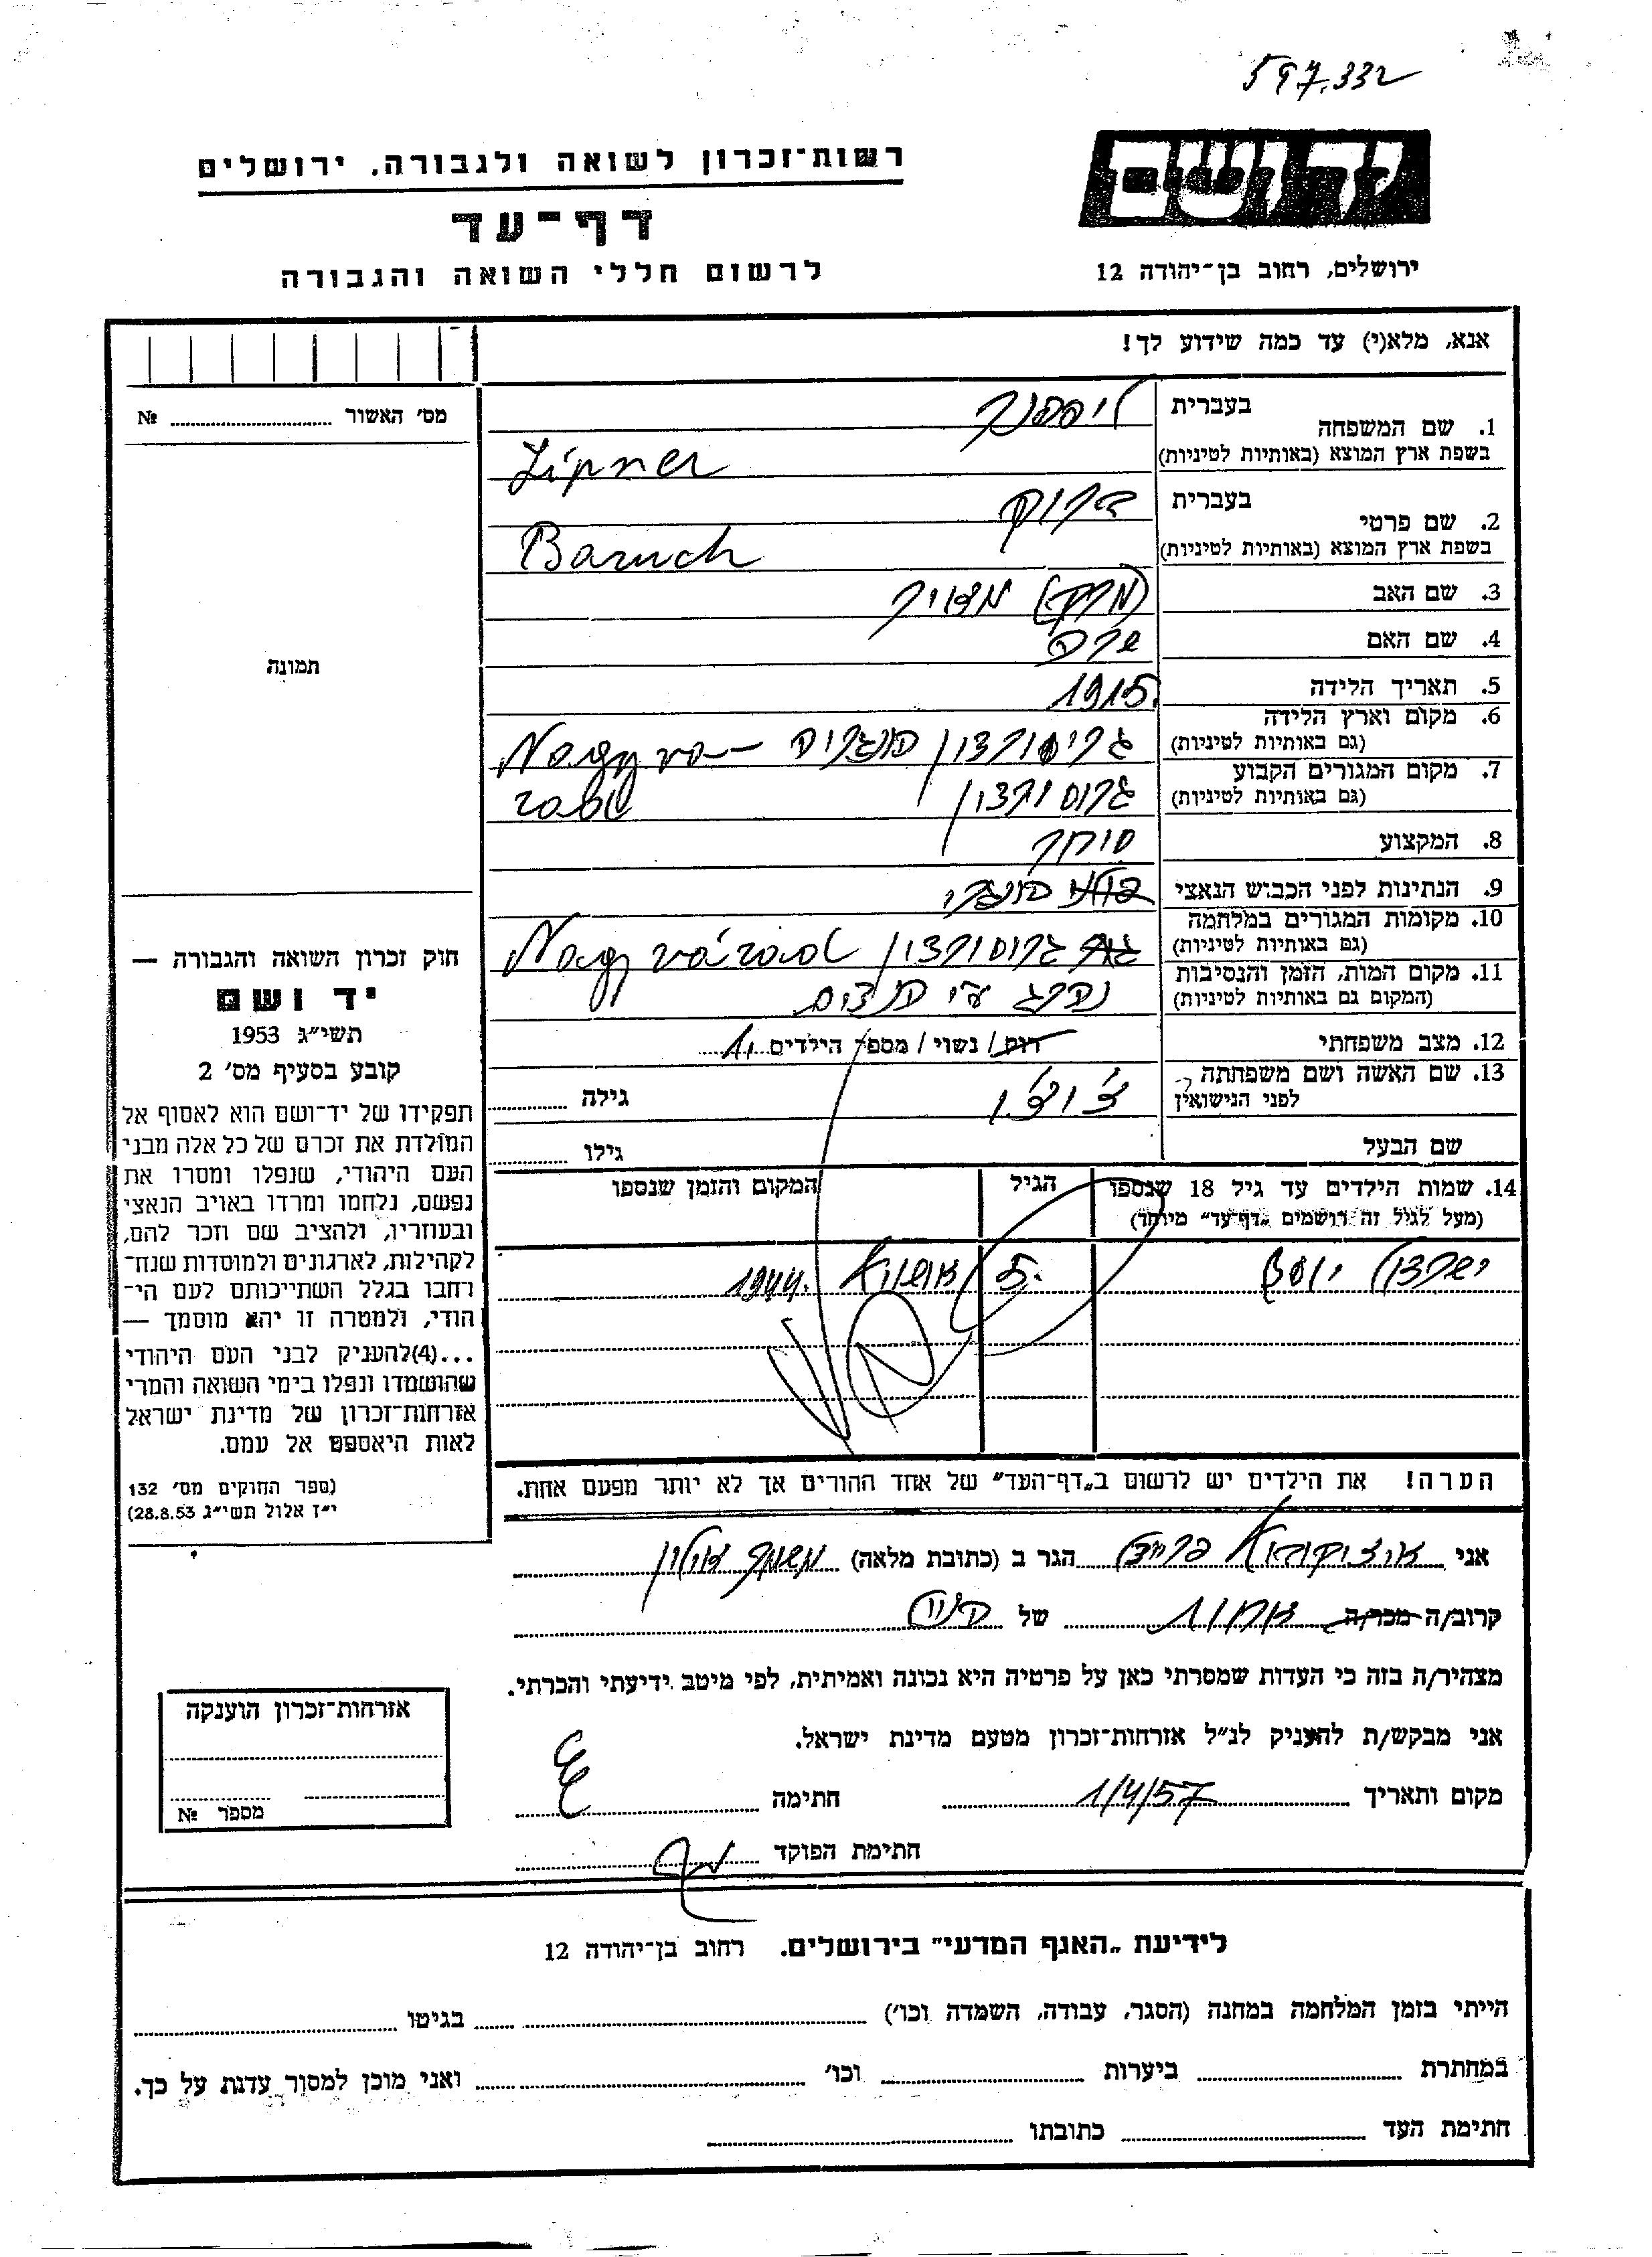 597.332
יד ושם
רשות־זכרון לשואה ולגבורה, ירושלים
דף־עד
לרשום חללי השואה והגבורה
ירושלים, רחוב בן־יהודה 12
אנא, מלא(י) עד כמה שידוע לך!
מס' האשור № 
תמונה
חוק זכרון השואה והגבורה —
יד ושם
תשי״ג 1953
קובע בסעיף מס' 2
תפקידו של יד־ושם הוא לאסוף אל
המולדת את זכרם של כל אלה מבני
העם היהודי, שנפלו ומסרו את
נפשם, נלחמו ומרדו באויב הנאצי
ובעוזריו, ולהציב שם וזכר להם,
לקהילות, לארגונים ולמוסדות שנח־
רחבו בגלל השתייכותם לעם הי־
הודי, ולמטרה זו יהא מוסמך —
...(4)להעניק לבני העם היהודי
שהושמדו ונפלו בימי השואה והמרי
אזרחות־זכרון של מדינת ישראל
לאות היאספם אל עמם.
(ספר החוקים מס' 132
י״ז אלול תשי״ג 28.8.53)
בעברית ליפנר
1. שם המשפחה
בשפת ארץ המוצא (באותיות לטיניות) Lipner
בעברית ברוך
2. שם פרטי
בשפת ארץ המוצא (באותיות לטיניות) Baruch
3. שם האב
4. שם האם שרה
5. תאריך הלידה 1915
6. מקום וארץ הלידה
(גם באותיות לטיניות) גרוסורדין הונגריה — Nagyva-
7. מקום המגורים הקבוע
(גם באותיות לטיניות) גרוסורדין rad
8. המקצוע סוחר
9. הנתינות לפני הכבוש הנאצי הונגרי
10. מקומות המגורים במלחמה
(גם באותיות לטיניות) גרוסורדין Nagyvárad
11. מקום המות, הזמן והנסיבות
(המקום גם באותיות לטיניות) נהרג ע״י הנצים
12. מצב משפחתי רוק / נשוי / מספר הילדים 1
13. שם האשה ושם משפחתה
לפני הנישואין גילה
שם הבעל גילו
14. שמות הילדים עד גיל 18 שנספו הגיל המקום והזמן שנספו
(מעל לגיל זה רושמים „דף־עד״ מיוחד)
יוסף 5 1944
הערה! את הילדים יש לרשום ב„דף־העד״ של אחד ההורים אך לא יותר מפעם אחת.
אני הגר ב (כתובת מלאה)
קרוב/ה מכר/ה של
מצהיר/ה בזה כי העדות שמסרתי כאן על פרטיה היא נכונה ואמיתית, לפי מיטב ידיעתי והכרתי.
אני מבקש/ת להעניק לנ״ל אזרחות־זכרון מטעם מדינת ישראל.
מקום ותאריך 1/4/57 חתימה
חתימת הפוקד
אזרחות־זכרון הוענקה
מספר №
לידיעת „האגף המדעי״ בירושלים. רחוב בן־יהודה 12
הייתי בזמן המלחמה במחנה (הסגר, עבודה, השמדה וכו') בגיטו
במחתרת ביערות וכו' ואני מוכן למסור עדות על כך.
חתימת העד כתובתו